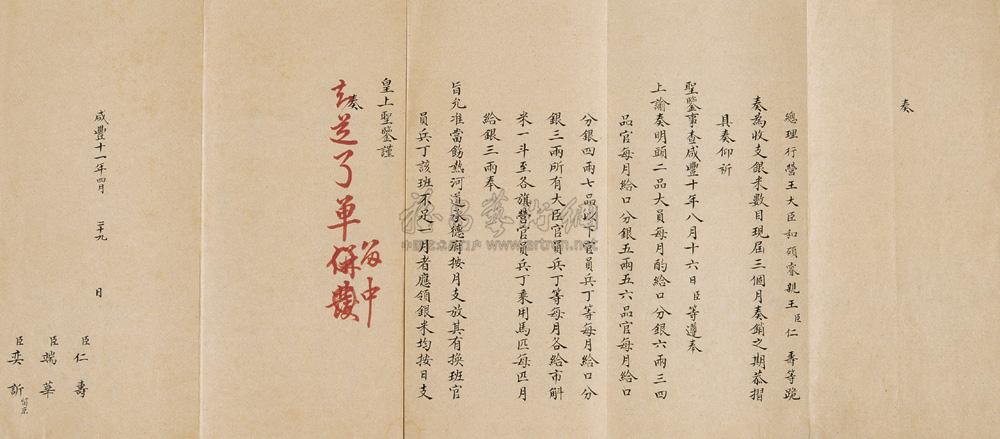 奏
總理行營王大臣和碩睿親王臣仁 壽等跪
奏為收支銀米數目現屆三個月奏銷之期恭摺
具奏仰祈
聖鑒事查咸豐十年八月十六日臣等遵奉
上諭奏明頭二品大員每月酌給口分銀六兩三四
品官每月給口分銀五兩五六品官每月給口
分銀四兩七品以下官員兵丁等每月給口分
銀三兩所有大臣官員兵丁等每月各給市斛
米一斗至各旗營官員兵丁乘用馬匹每匹月
給銀三兩奉
旨允准當飭熱河道承德府按月支放其有換班官
員兵丁該班不足一月者應領銀米均按日支
皇上聖鑒謹
奏
知道了單併發
留中
咸豐十一年四月 二十九 日
臣仁 壽
臣端 華
臣奕 訢 留京
www.artron.net